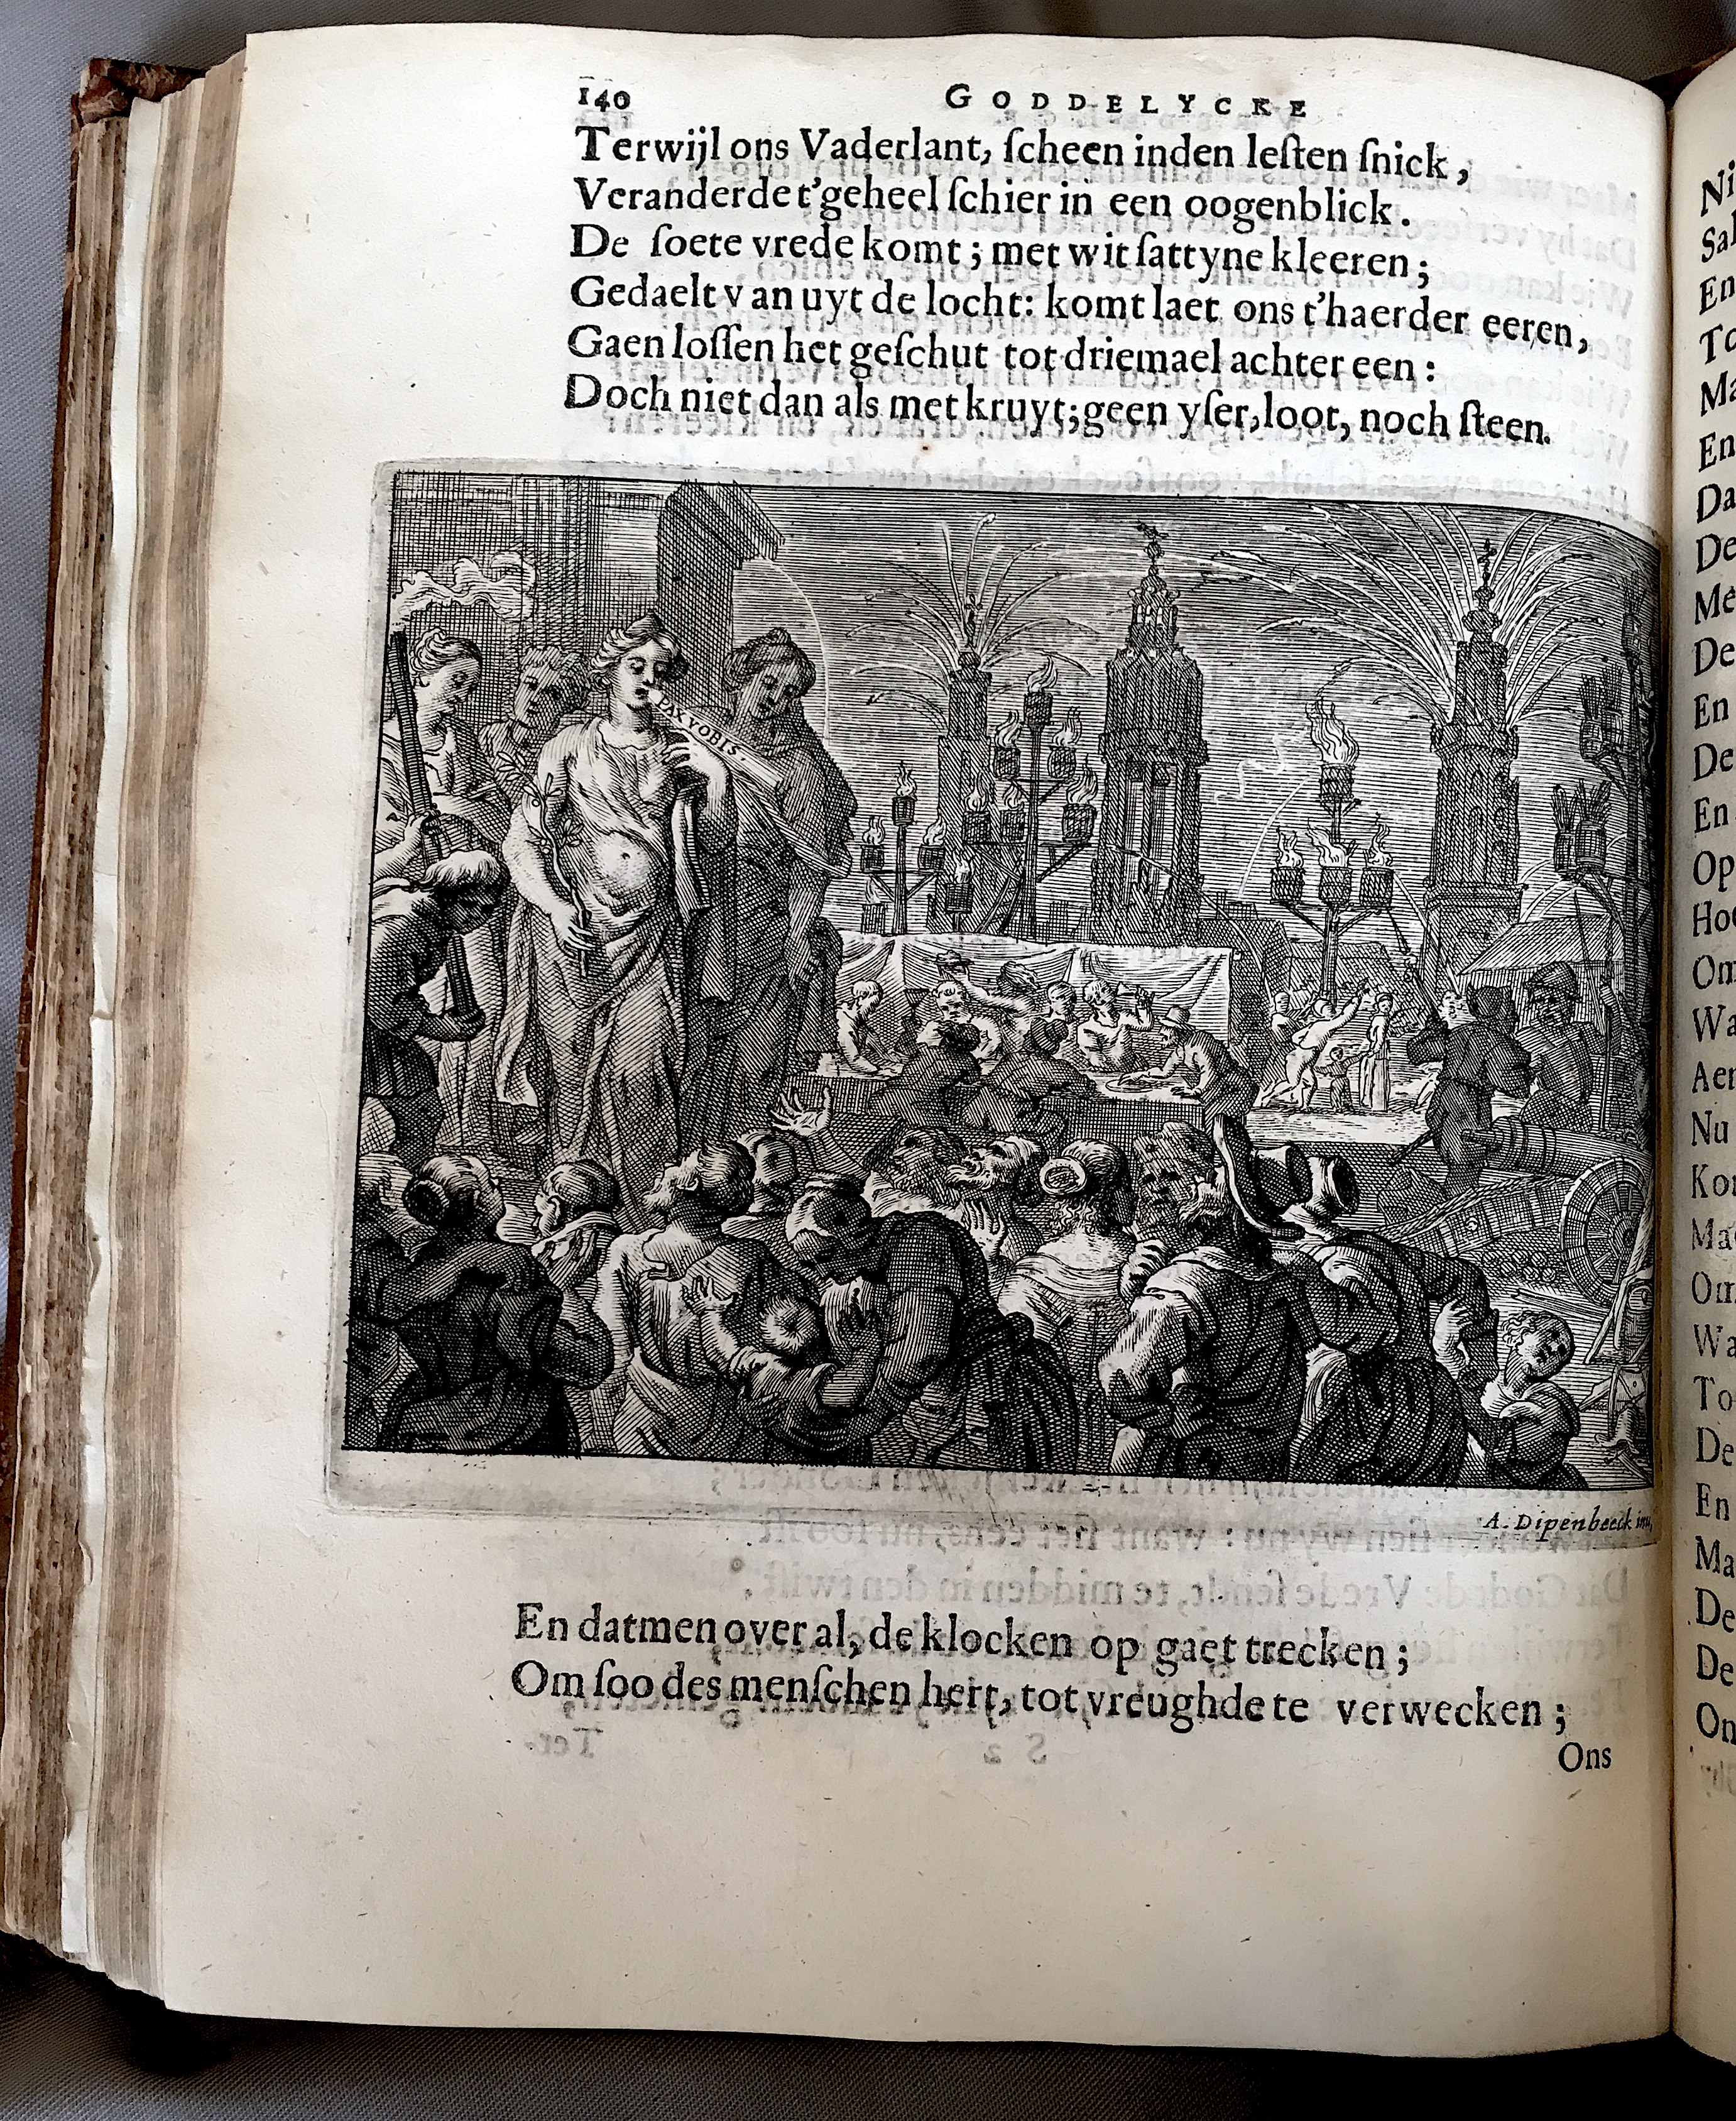 140 GODDELYCKE
Terwijl ons Vaderlant, ſcheen inden leſten ſnick,
Veranderde t'geheel ſchier in een oogenblick.
De ſoete vrede komt; met wit ſattyne kleeren;
Gedaelt van uyt de locht: komt laet ons t'haerder eeren,
Gaen loſſen het geſchut tot driemael achter een:
Doch niet dan als met kruyt; geen yſer, loot, noch ſteen.
PAX VOBIS
A. Dipenbeeck inu.
En datmen over al, de klocken op gaet trecken;
Om ſoo des menſchen hert, tot vreughde te verwecken;
Ons
Ni
Sal
En
To
Ma
En
Da
De
Me
De
En
De
En
Op
Hoo
Om
Wa
Aen
Nu
Kon
Ma
Om
Wa
To
De
En
Ma
De
De
On